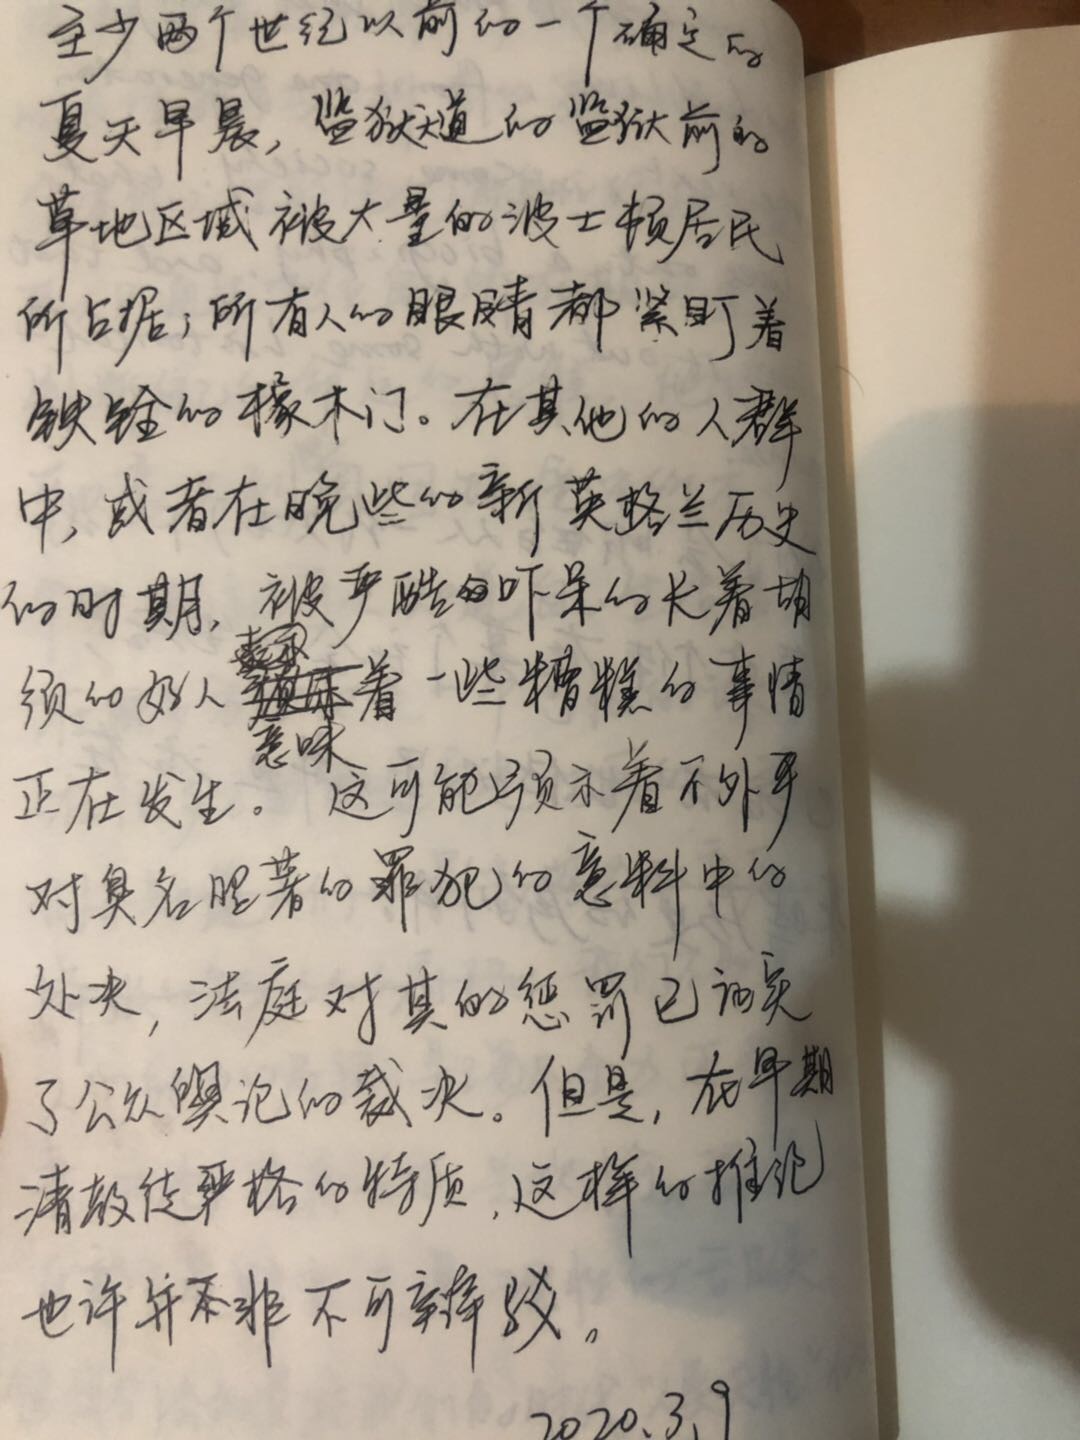 至少两个世纪以前的一个确定的
夏天早晨，监狱道的监狱前的
草地区域被大量的波士顿居民
所占据；所有人的眼睛都紧盯着
铁铨的橡木门。在其他的人群
中，或者在晚些的新英格兰历史
的时期，被严酷的吓呆的长着胡
须的好人着一些糟糕的事情
意味
正在发生。这可能预示着不外乎
对臭名昭著的罪犯的意料中的
处决，法庭对其的惩罚已证实
了公众舆论的裁决。但是，在早期
清教徒严格的特质，这样的推论
也许并不非不可辩驳。
2020.3.9